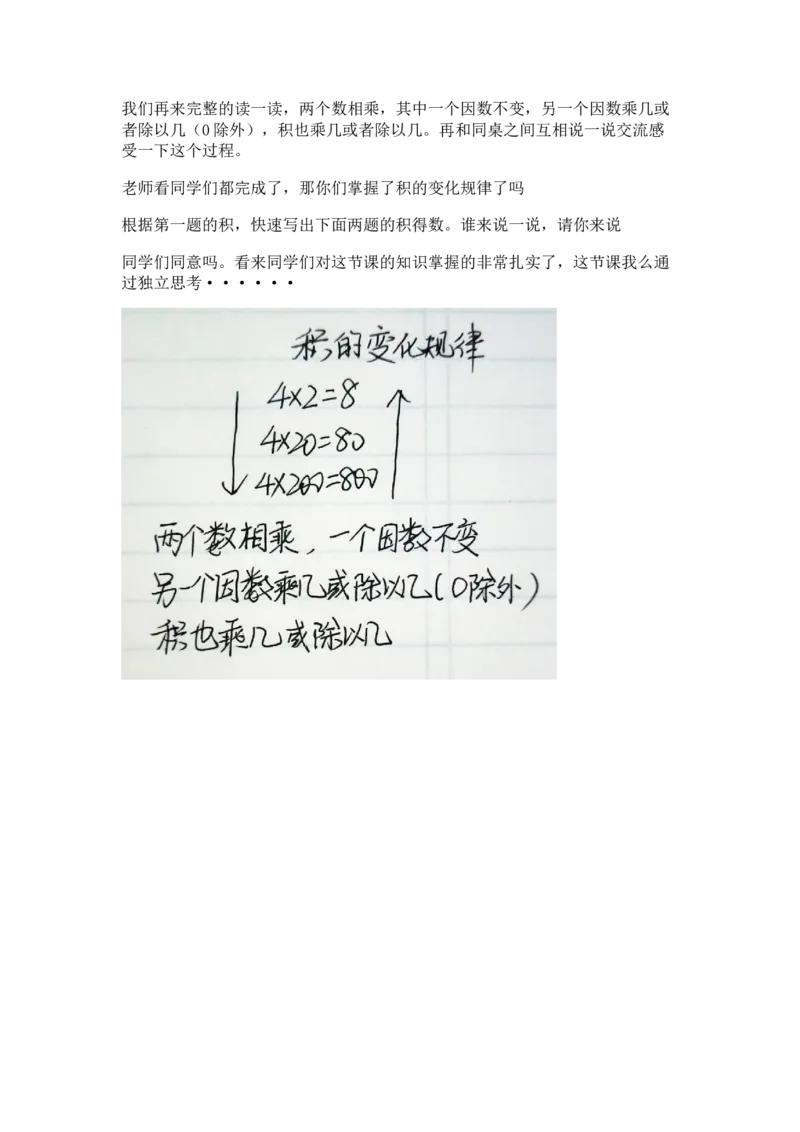 我们再来完整的读一读，两个数相乘，其中一个因数不变，另一个因数乘几或
者除以几（0除外），积也乘几或者除以几。再和同桌之间互相说一说交流感
受一下这个过程。
老师看同学们都完成了，那你们掌握了积的变化规律了吗
根据第一题的积，快速写出下面两题的积得数。谁来说一说，请你来说
同学们同意吗。看来同学们对这节课的知识掌握的非常扎实了，这节课我么通
过独立思考······
积的变化规律
4×2=8
4×20=80
4×200=800
两个数相乘，一个因数不变
另一个因数乘几或除以几(0除外)
积也乘几或除以几